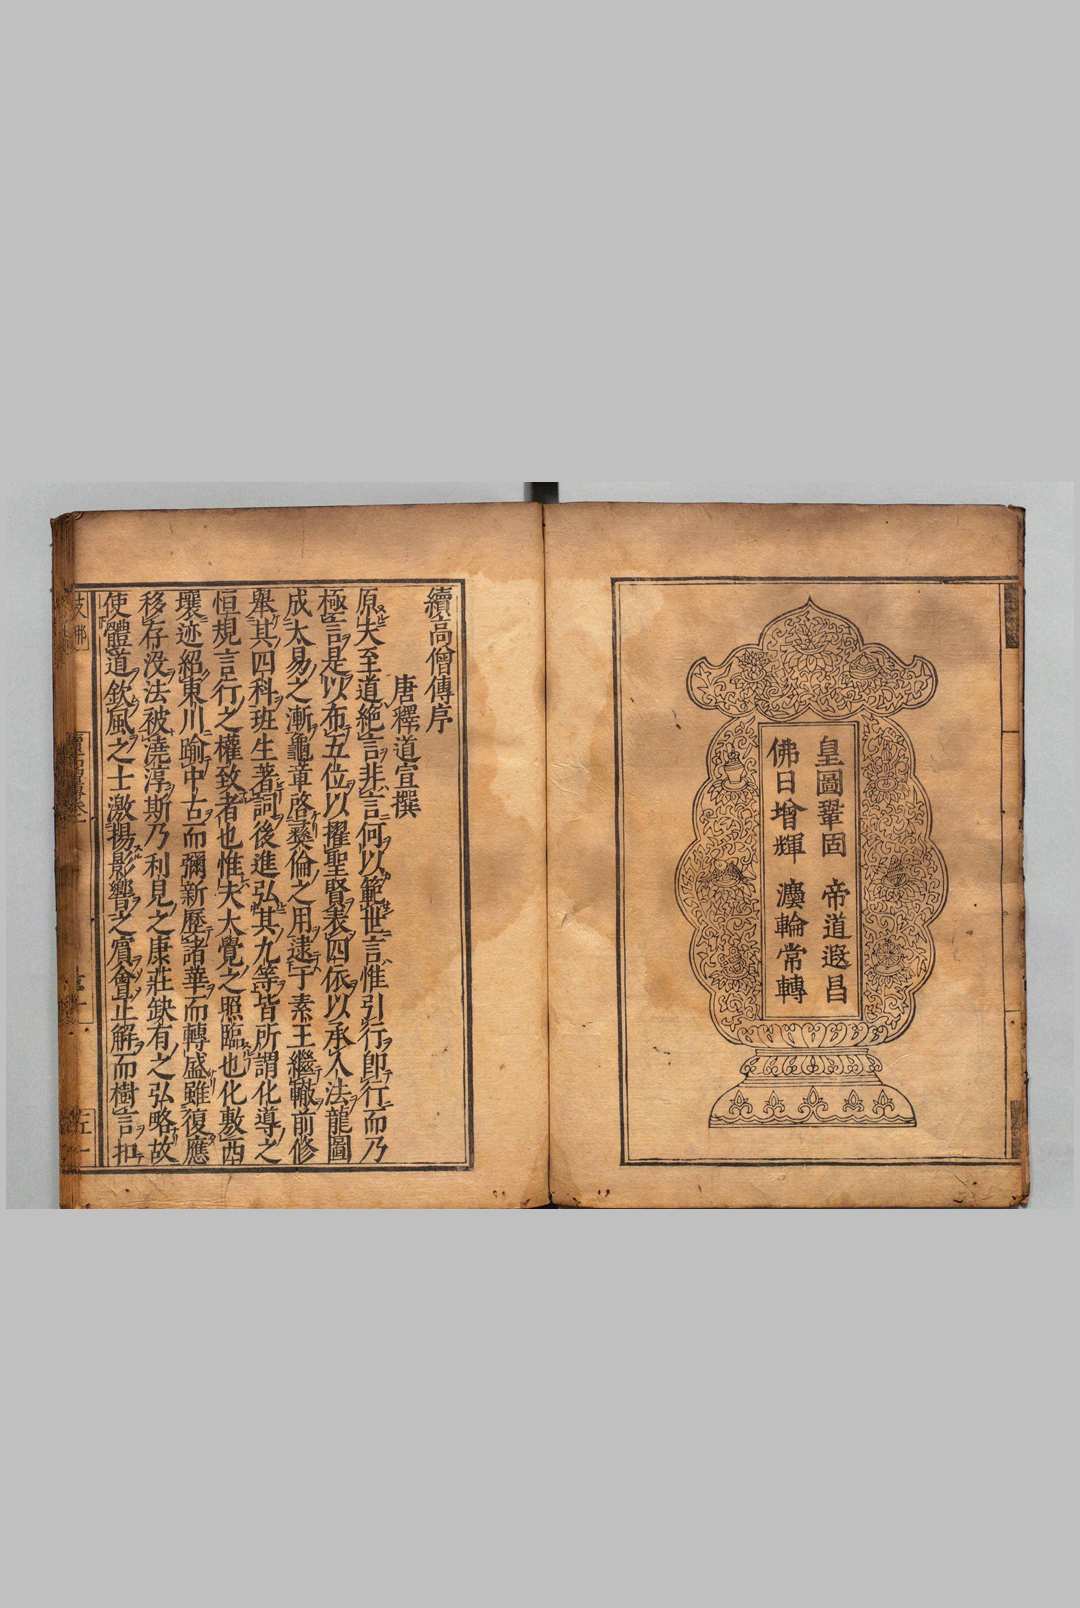 皇圖鞏固 帝道遐昌
佛日增輝 灋輪常轉
續高僧傳序
唐釋道宣撰
原夫至道絕言非言何以範世言惟引行即行而乃
極言是以布五位以擢聖賢表四依以承人法龍圖
成太易之漸龜章啓彞倫之用逮于素王繼轍前修
舉其四科班生著詞後進弘其九等皆所謂化導之
恒規言行之權致者也惟夫大覺之照臨也化敷西
壤迹紹東川踰中古而彌新歷諸華而轉盛雖復應
移存沒法被澆淳斯乃利見之康莊缺有之弘略故
使體道欽風之士激揚影響之賓會正解而樹言扣